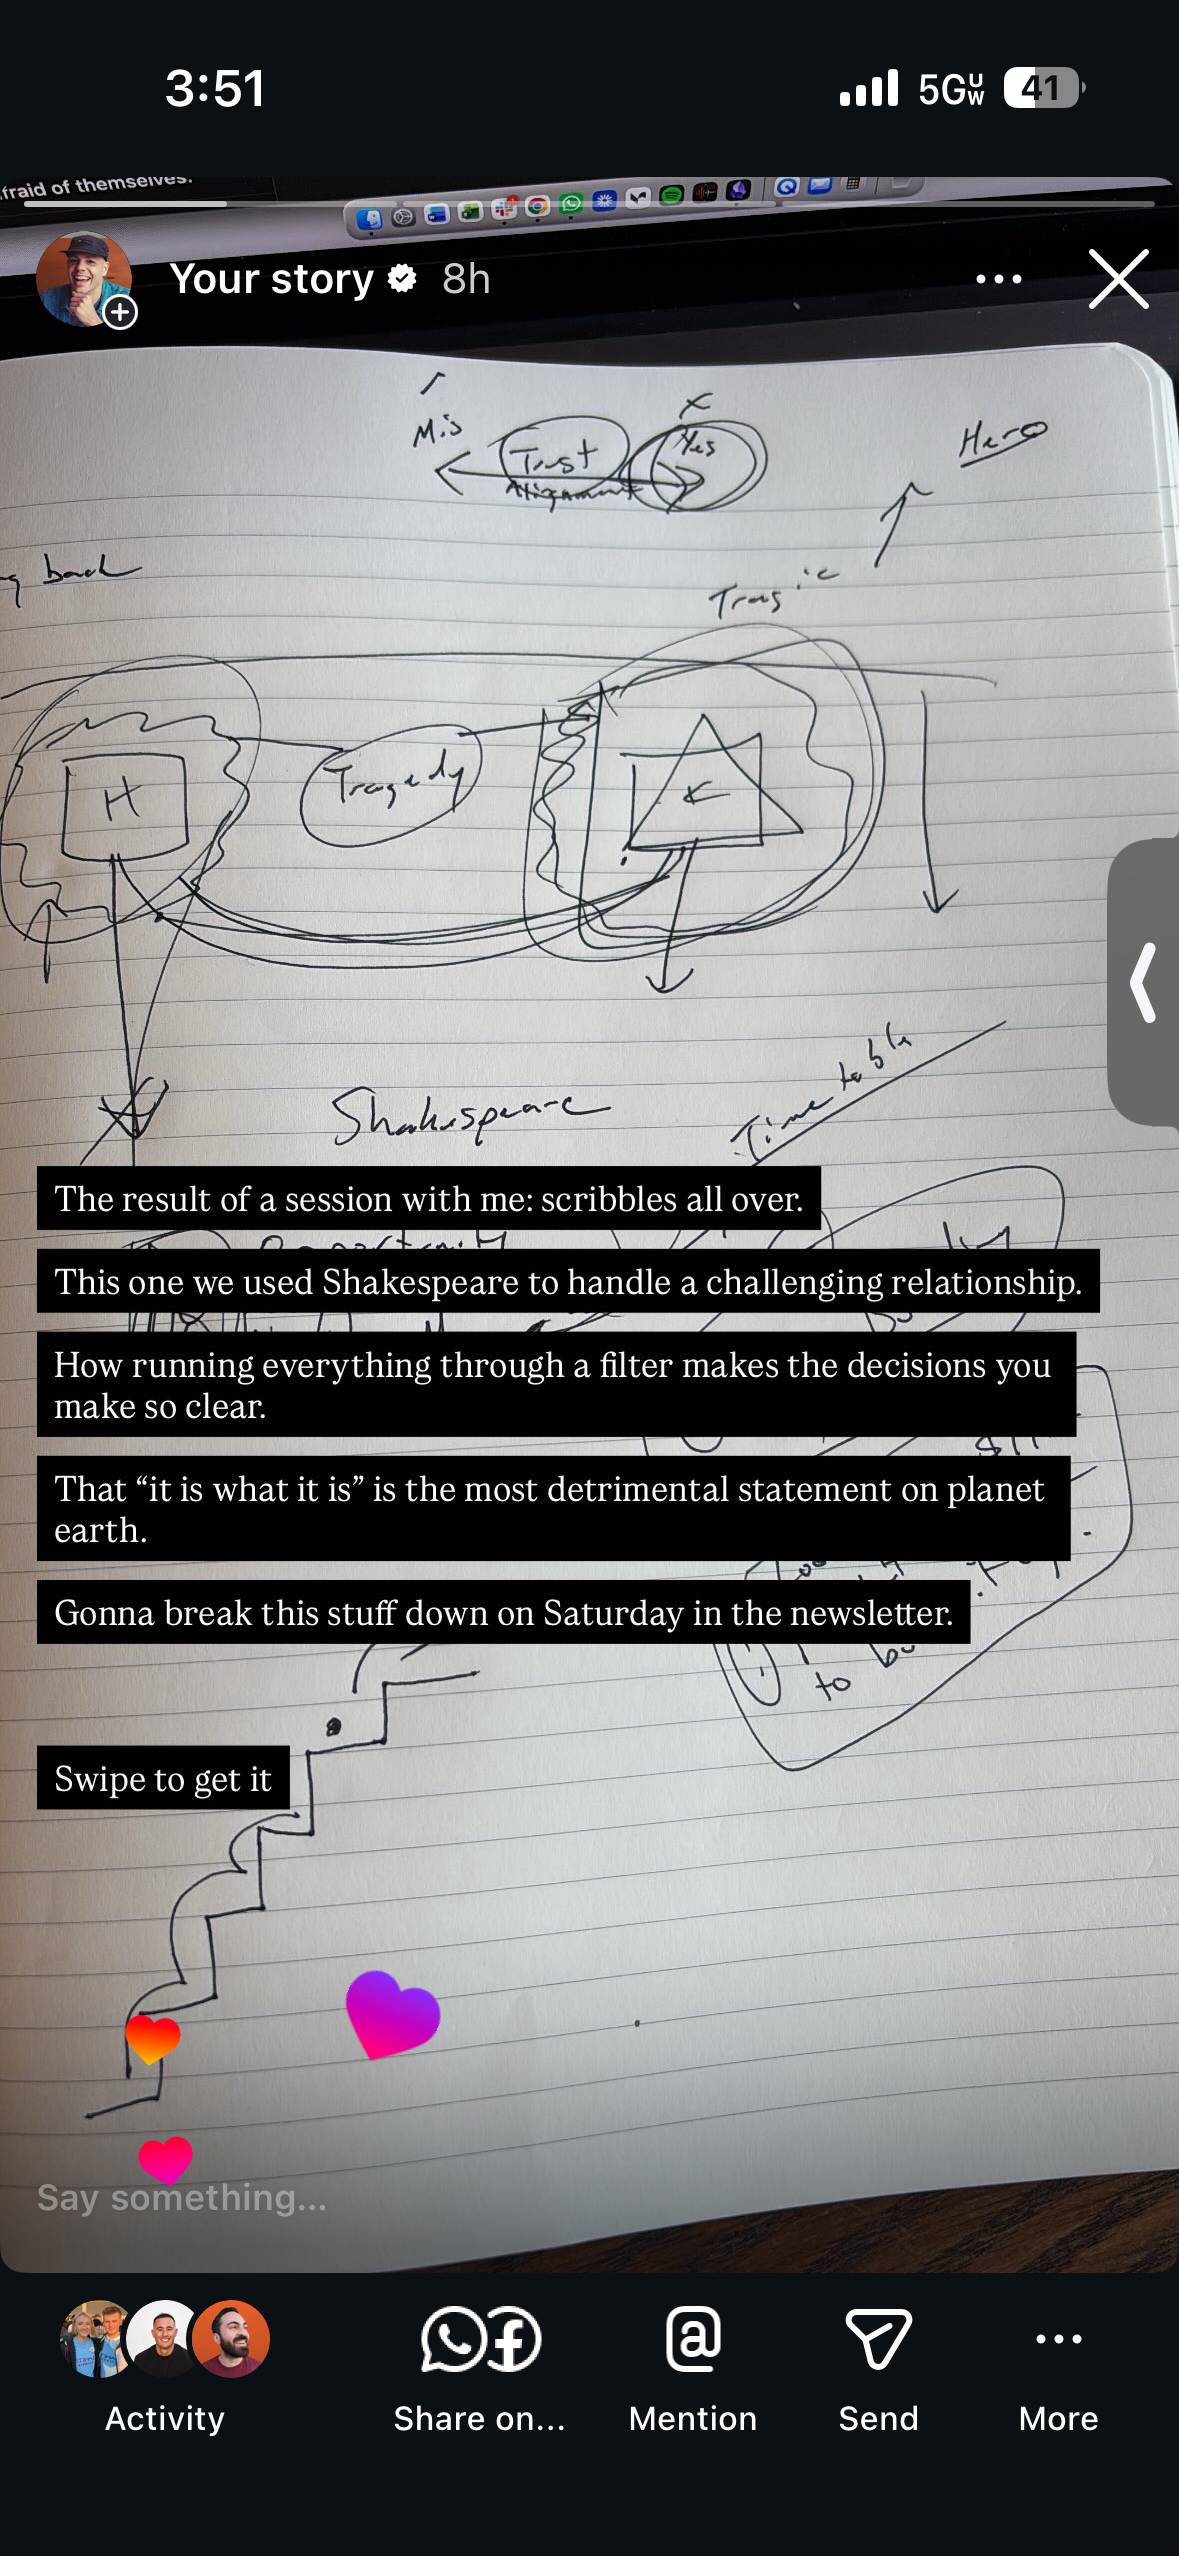 3:51
5G UW
41
fraid of themselves.
Your story
8h
Mis
Trust
Yes
Alignment
Hero
back
Tragic
H
Tragedy
K
Shakespeare
Time table
The result of a session with me: scribbles all over.
This one we used Shakespeare to handle a challenging relationship.
How running everything through a filter makes the decisions you
make so clear.
That “it is what it is” is the most detrimental statement on planet
earth.
Gonna break this stuff down on Saturday in the newsletter.
to
Swipe to get it
Say something...
Activity
Share on...
Mention
Send
More